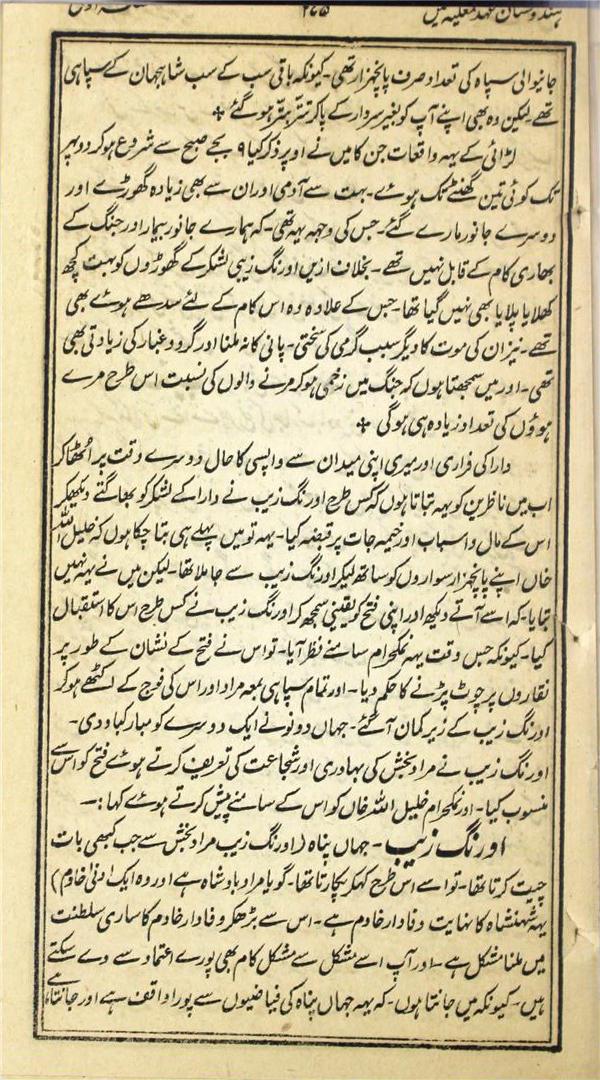 ہندوستان عہد مغلیہ میں ۲۷۵
جانیوالی سپاہ کی تعداد صرف پانچہزار تھی۔ کیونکہ باقی سب کے سب شاہجہان کے سپاہی
تھے۔ لیکن وہ بھی اپنے آپ کو بغیر سردار کے پاکر تتر بتر ہو گئے ❖
لڑائی کے یہہ واقعات جن کا میں نے اوپر ذکر کیا ۹ بجے صبح سے شروع ہو کر دوپہر
تک کوئی تین گھنٹے تک ہوئے۔ بہت سے آدمی اور ان سے بھی زیادہ گھوڑے اور
دوسرے جانور مارے گئے۔ جس کی وجہہ یہہ تھی۔ کہ ہمارے جانور بیمار اور جنگ کے
بھاری کام کے قابل نہیں تھے۔ بخلاف ازیں اورنگ زیبی لشکر کے گھوڑوں کو بہت کچھ
کھلایا پلایا بھی نہیں گیا تھا۔ جس کے علاوہ وہ اس کام کے لئے سدھے ہوئے بھی
تھے۔ نیز ان کی موت کا دیگر سبب گرمی کی سختی۔ پانی کا نہ ملنا اور گرد و غبار کی زیادتی بھی
تھی۔ اور میں سمجھتا ہوں کہ جنگ میں زخمی ہو کر مرنے والوں کی نسبت اس طرح مرے
ہوؤں کی تعداد زیادہ ہی ہوگی ❖
دارا کی فراری اور میری اپنی میدان سے واپسی کا حال دوسرے وقت پر اٹھا کر
اب میں ناظرین کو یہہ بتاتا ہوں کہ کس طرح اورنگ زیب نے دارا کے لشکر کو بھاگتے دیکھکر
اس کے مال و اسباب اور خیمہ جات پر قبضہ کیا۔ یہہ تو میں پہلے ہی بتا چکا ہوں کہ خلیل اللہ
خاں اپنے پانچہزار سواروں کو ساتھ لیکر اورنگ زیب سے جا ملا تھا۔ لیکن میں نے یہہ نہیں
بتایا۔ کہ اسے آتے دیکھ اور اپنی فتح کو یقینی سمجھ کر اورنگ زیب نے کس طرح اس کا استقبال
کیا۔ کیونکہ جس وقت یہہ نمکحرام سامنے نظر آیا۔ تو اس نے فتح کے نشان کے طور پر
نقاروں پر چوٹ پڑنے کا حکم دیا۔ اور تمام سپاہی بمعہ مراد اور اس کی فوج کے اکٹھے ہو کر
اورنگ زیب کے زیر کمان آ گئے۔ جہاں دونو نے ایک دوسرے کو مبارکباد دی۔
اورنگ زیب نے مراد بخش کی بہادری اور شجاعت کی تعریف کرتے ہوئے فتح کو اس سے
منسوب کیا۔ اور نمکحرام خلیل اللہ خاں کو اس کے سامنے پیش کرتے ہوئے کہا :۔
اورنگ زیب۔ جہاں پناہ (اورنگ زیب مراد بخش سے جب کبھی بات
چیت کرتا تھا۔ تو اسے اس طرح کہکر پکارتا تھا۔ گویا مراد بادشاہ ہے اور وہ ایک ادنیٰ خادم)
یہہ شہنشاہ کا نہایت وفادار خادم ہے۔ اس سے بڑھکر وفادار خادم کا ساری سلطنت
میں ملنا مشکل ہے۔ اور آپ اسے مشکل سے مشکل کام بھی پورے اعتماد سے دے سکتے
ہیں۔ کیونکہ میں جانتا ہوں۔ کہ یہہ جہاں پناہ کی فیاضیوں سے پورا واقف ہے اور جانتا ہے